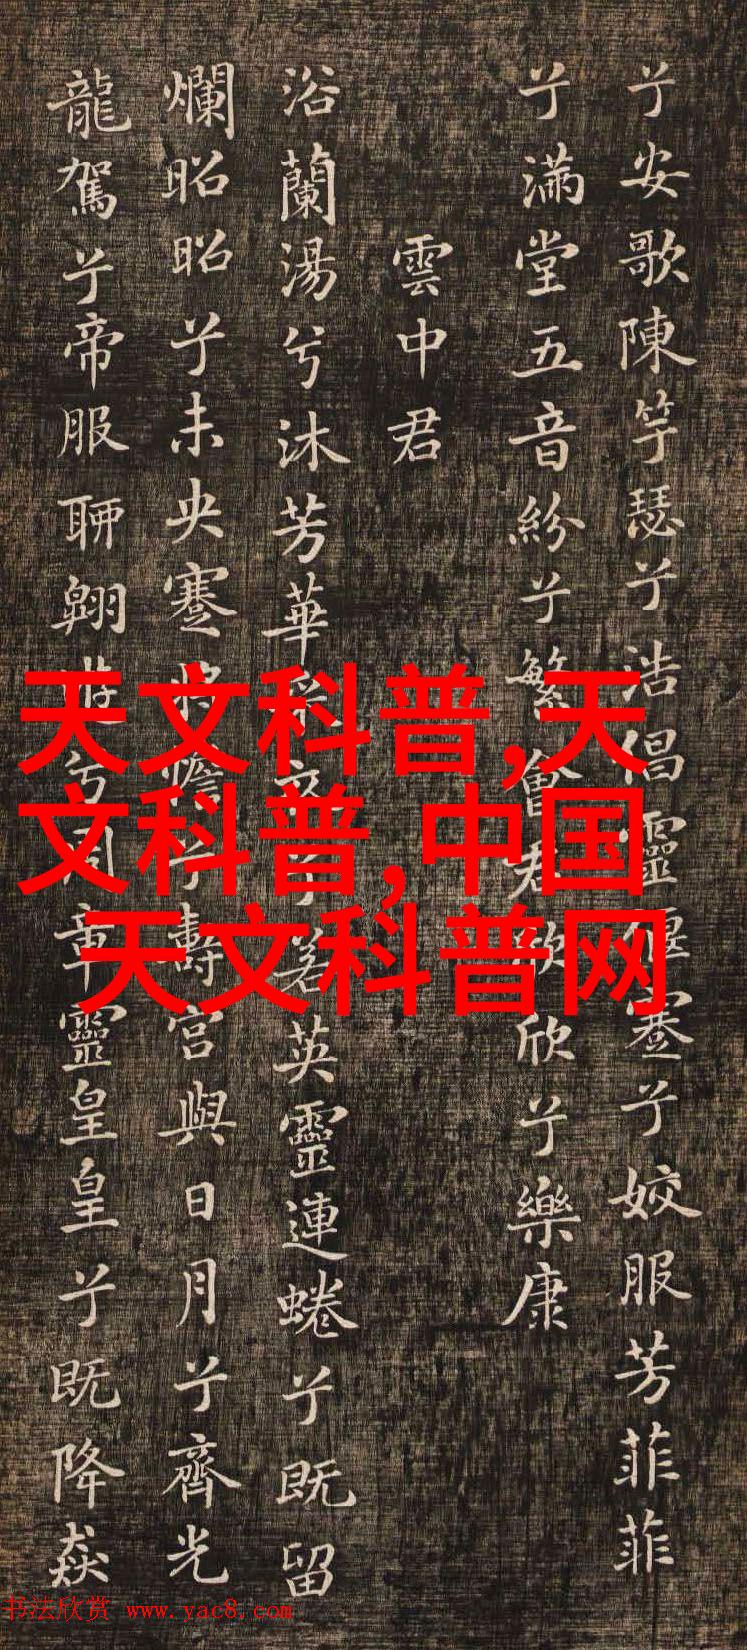 兮安歌陳竽瑟兮浩倡靈偃蹇兮姣服芳菲菲
兮滿堂五音紛兮繁會君欣欣兮樂康
雲中君
浴蘭湯兮沐芳華采衣兮若英靈連蜷兮既留
爛昭昭兮未央蹇將憺兮壽宮與日月兮齊光
龍駕兮帝服聊翱遊兮周章靈皇皇兮既降猋
天文科普,天
文科普,中国
天文科普网
书法欣赏 www.yac8.com